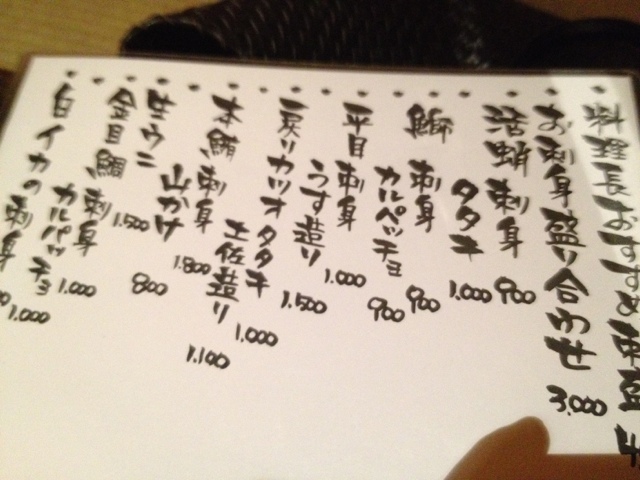 料理長おすすめ
お刺身盛り合わせ 3,000
活蛸 刺身 900
タタキ 1.000
鰤 刺身 900
カルペッチョ 900
平目 刺身 1.000
うす造り 1.500
戻りカツオ タタキ 1.000
土佐造り 1.100
本鮪 刺身 1.800
山かけ 800
生ウニ 1.500
金目鯛 刺身 1.000
カルパッチョ 1.000
白イカの刺身